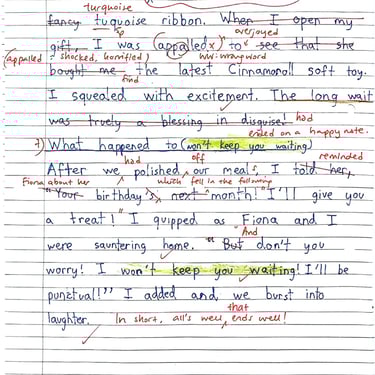 turquoise
fancy tuquoise ribbon. When I open my
up overjoyed
gift, I was (appalled x) to see that she
(appalled : shocked, horrified) ww: wrong word
bought me the latest Cinnamoroll soft toy.
find
I squealed with excitement. The long wait
was truely a blessing in disguise! had
ended on a happy note.
7) What happened to (won't keep you waiting)
had off reminded
After we polished our meals, I told her,
Fiona about her which fell in the following
"Your birthday's next month! "I'll give you
a treat!" I quipped as Fiona and I
And
were sauntering home. "But don't you
worry! I won't keep you waiting! I'll be
punctual!" I added and we burst into
that
laughter. In short, all's well, ends well!